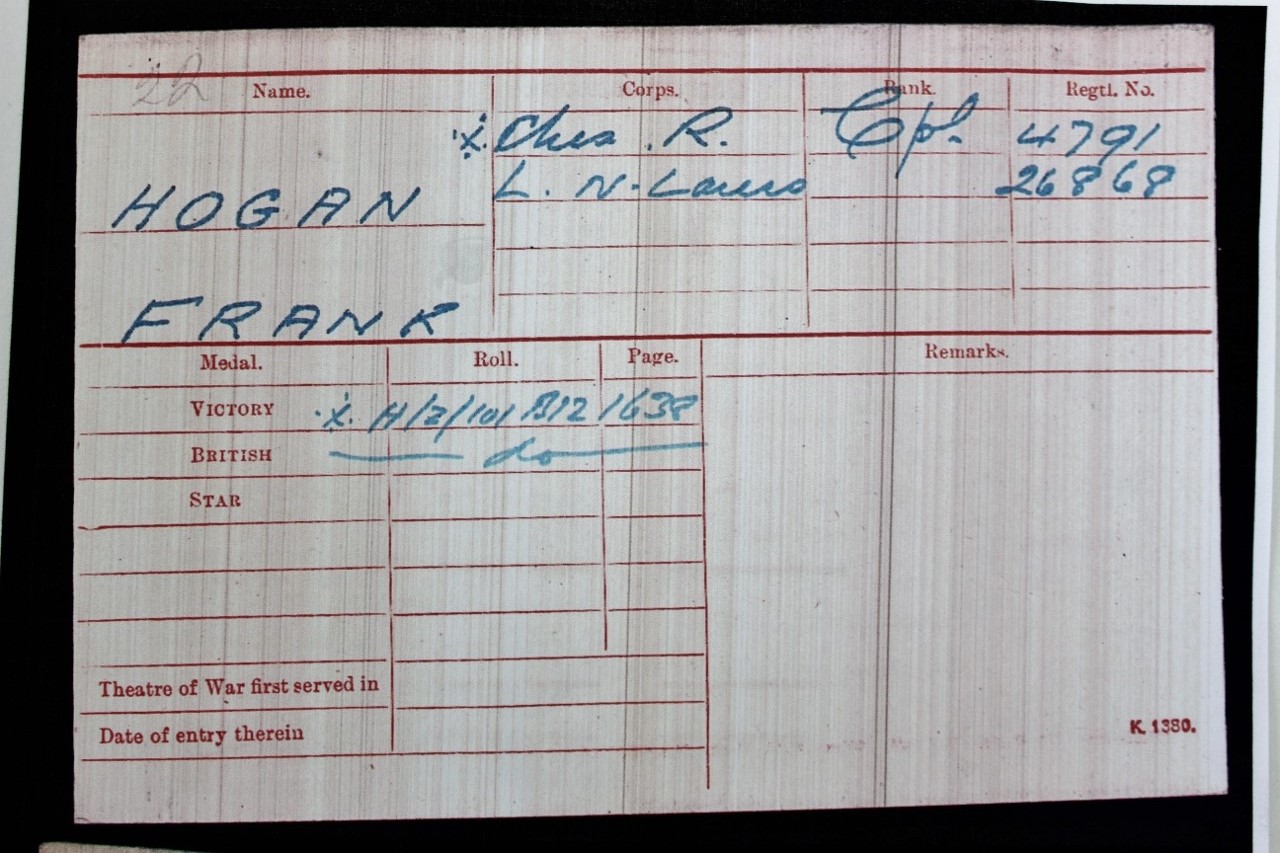 22
Name. Corps. Rank. Regtl. No.
·x· Ches. R. Cpl. 4791
HOGAN L. N. Lancs 26868
FRANK
Medal. Roll. Page. Remarks.
VICTORY ·x· H/2/101 B12 1638
BRITISH do
STAR
Theatre of War first served in
Date of entry therein
K. 1380.